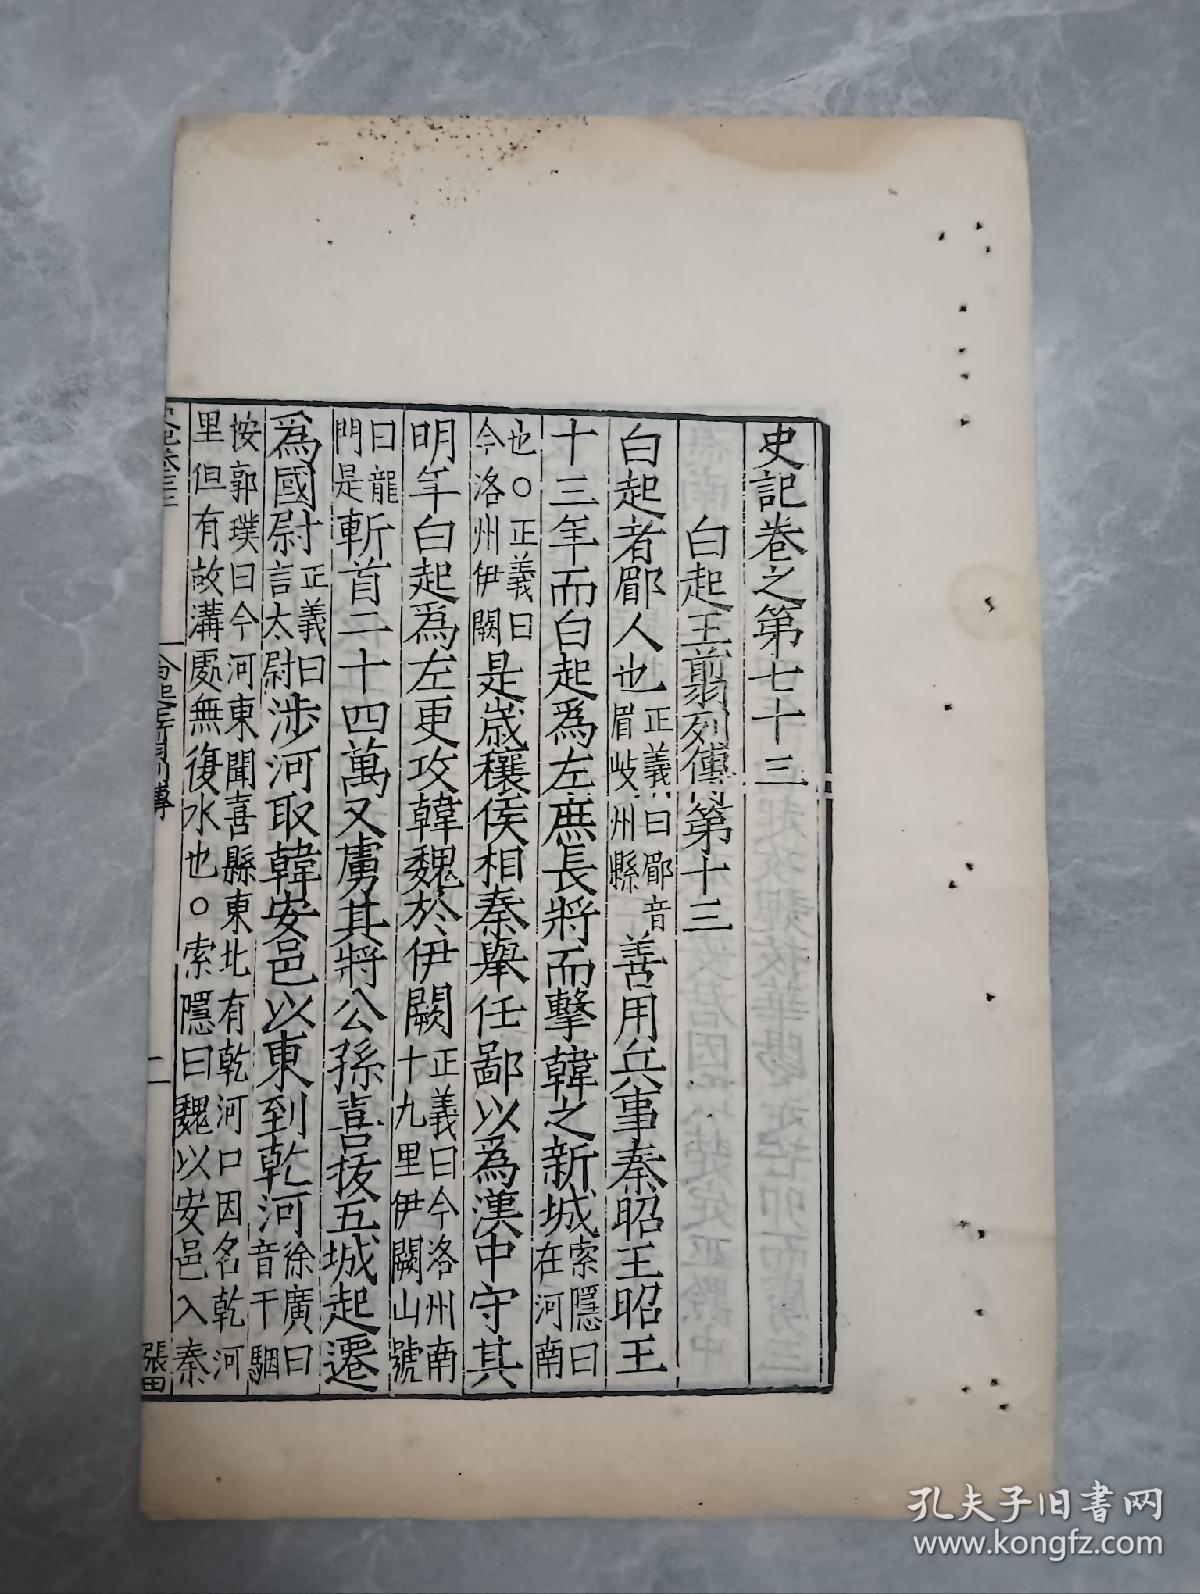 史記卷之第七十三
白起王翦列傳第十三
白起者郿人也正義曰郿音眉岐州縣善用兵事秦昭王昭王
十三年而白起爲左庶長將而擊韓之新城索隱曰在河南
也○正義曰今洛州伊闕是歲穰侯相秦舉任鄙以爲漢中守其
明年白起爲左更攻韓魏於伊闕正義曰今洛州南十九里伊闕山號
曰龍門是斬首二十四萬又虜其將公孫喜拔五城起遷
爲國尉正義曰言太尉涉河取韓安邑以東到乾河徐廣曰音干駰
按郭璞曰今河東聞喜縣東北有乾河口因名乾河
里但有故溝處無復水也○索隱曰魏以安邑入秦
二
張田
孔夫子旧書网
www.kongfz.com